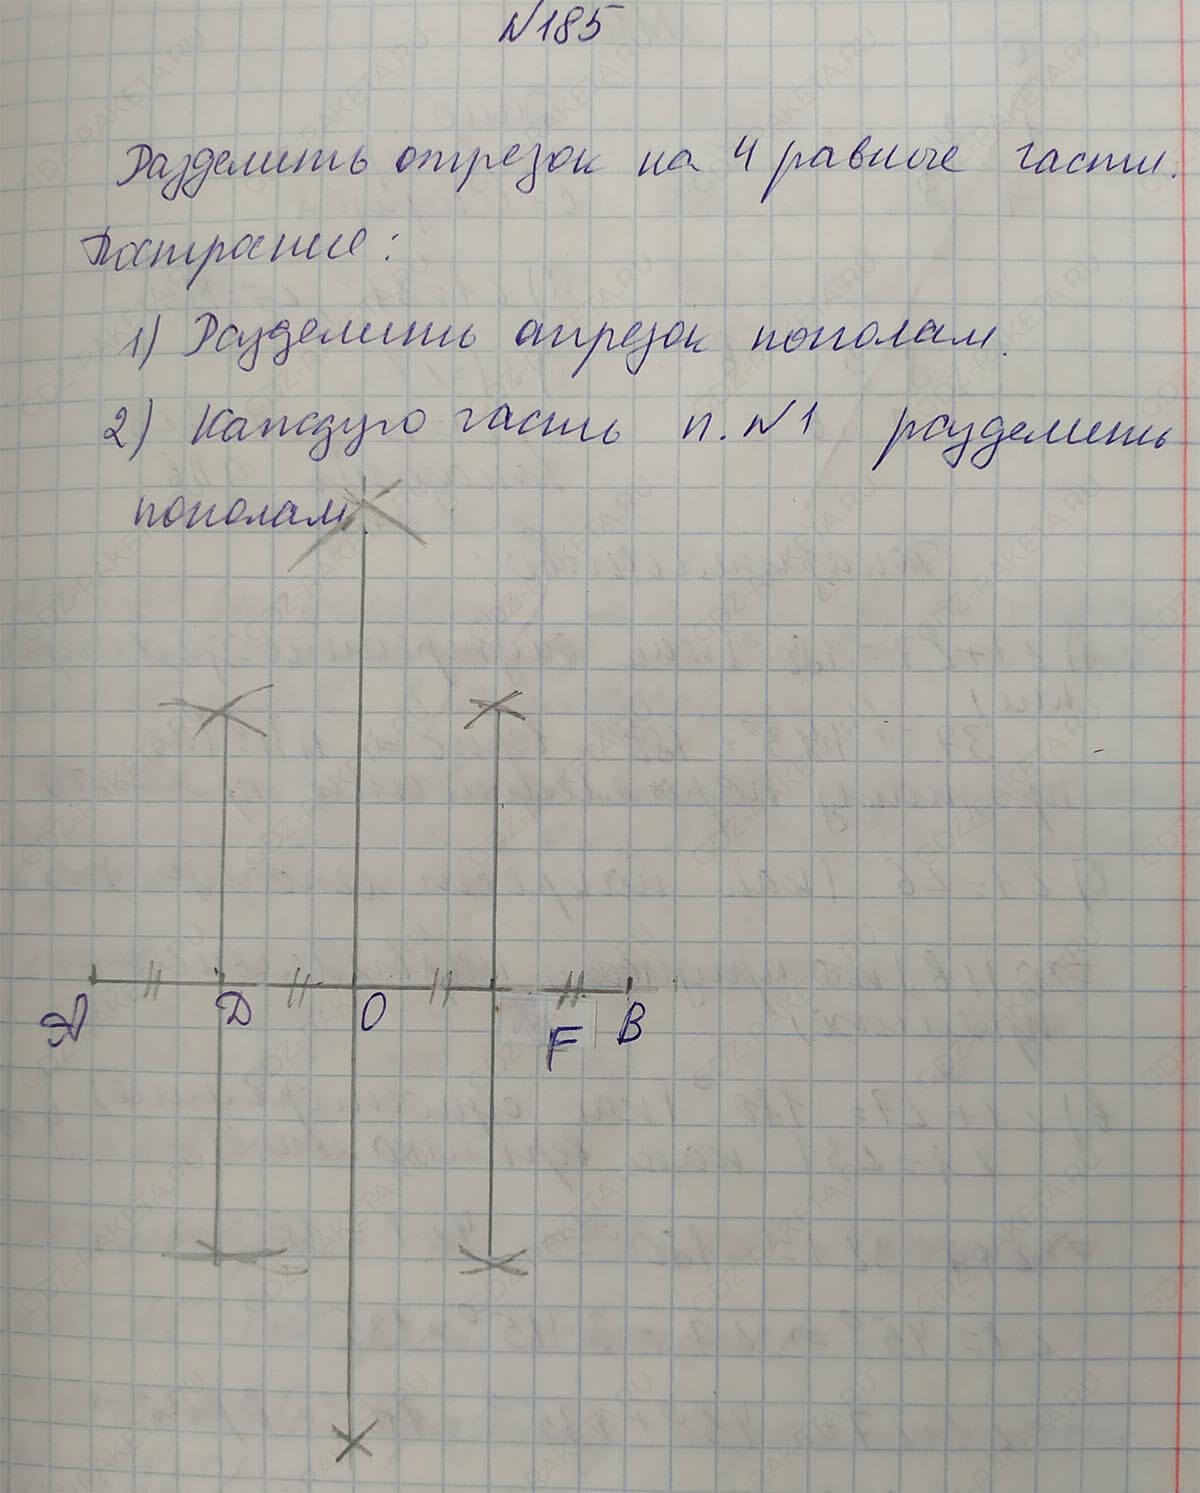 №185
Разделить отрезок на 4 равные части.
Построение:
1) Разделить отрезок пополам.
2) Каждую часть п. №1 разделить
пополам.
A D O F B